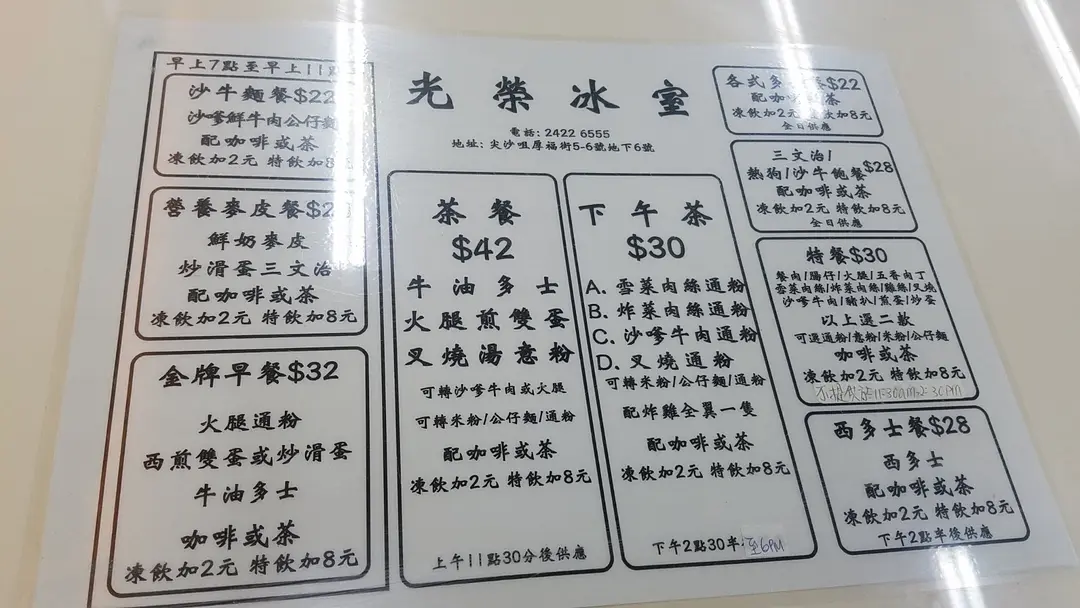 早上7點至早上11點
沙牛麵餐$22
沙嗲鮮牛肉公仔麵
配咖啡或茶
凍飲加2元 特飲加8元
營養麥皮餐$2
鮮奶麥皮
炒滑蛋三文治
配咖啡或茶
凍飲加2元 特飲加8元
金牌早餐$32
火腿通粉
西煎雙蛋或炒滑蛋
牛油多士
咖啡或茶
凍飲加2元 特飲加8元
光榮冰室
電話: 2422 6555
地址: 尖沙咀厚福街5-6號地下6號
茶餐
$42
牛油多士
火腿煎雙蛋
叉燒湯意粉
可轉沙嗲牛肉或火腿
可轉米粉/公仔麵/通粉
配咖啡或茶
凍飲加2元 特飲加8元
上午11點30分後供應
下午茶
$30
A. 雪菜肉絲通粉
B. 炸菜肉絲通粉
C. 沙嗲牛肉通粉
D. 叉燒通粉
可轉米粉/公仔麵/通粉
配炸雞全翼一隻
配咖啡或茶
凍飲加2元 特飲加8元
下午2點30半 至6PM
各式多 餐$22
配咖 茶
凍飲加2元 飲加8元
全日供應
三文治/
熱狗/沙牛飽餐$28
配咖啡或茶
凍飲加2元 特飲加8元
全日供應
特餐$30
餐肉/腸仔/火腿/五香肉丁
雪菜肉絲/炸菜肉絲/雞絲/叉燒
沙嗲牛肉/豬扒/煎蛋/炒蛋
以上選二款
可選通粉/意粉/米粉/公仔麵
咖啡或茶
凍飲加2元 特飲加8元
西多士餐$28
西多士
配咖啡或茶
凍飲加2元 特飲加8元
下午2點半後供應